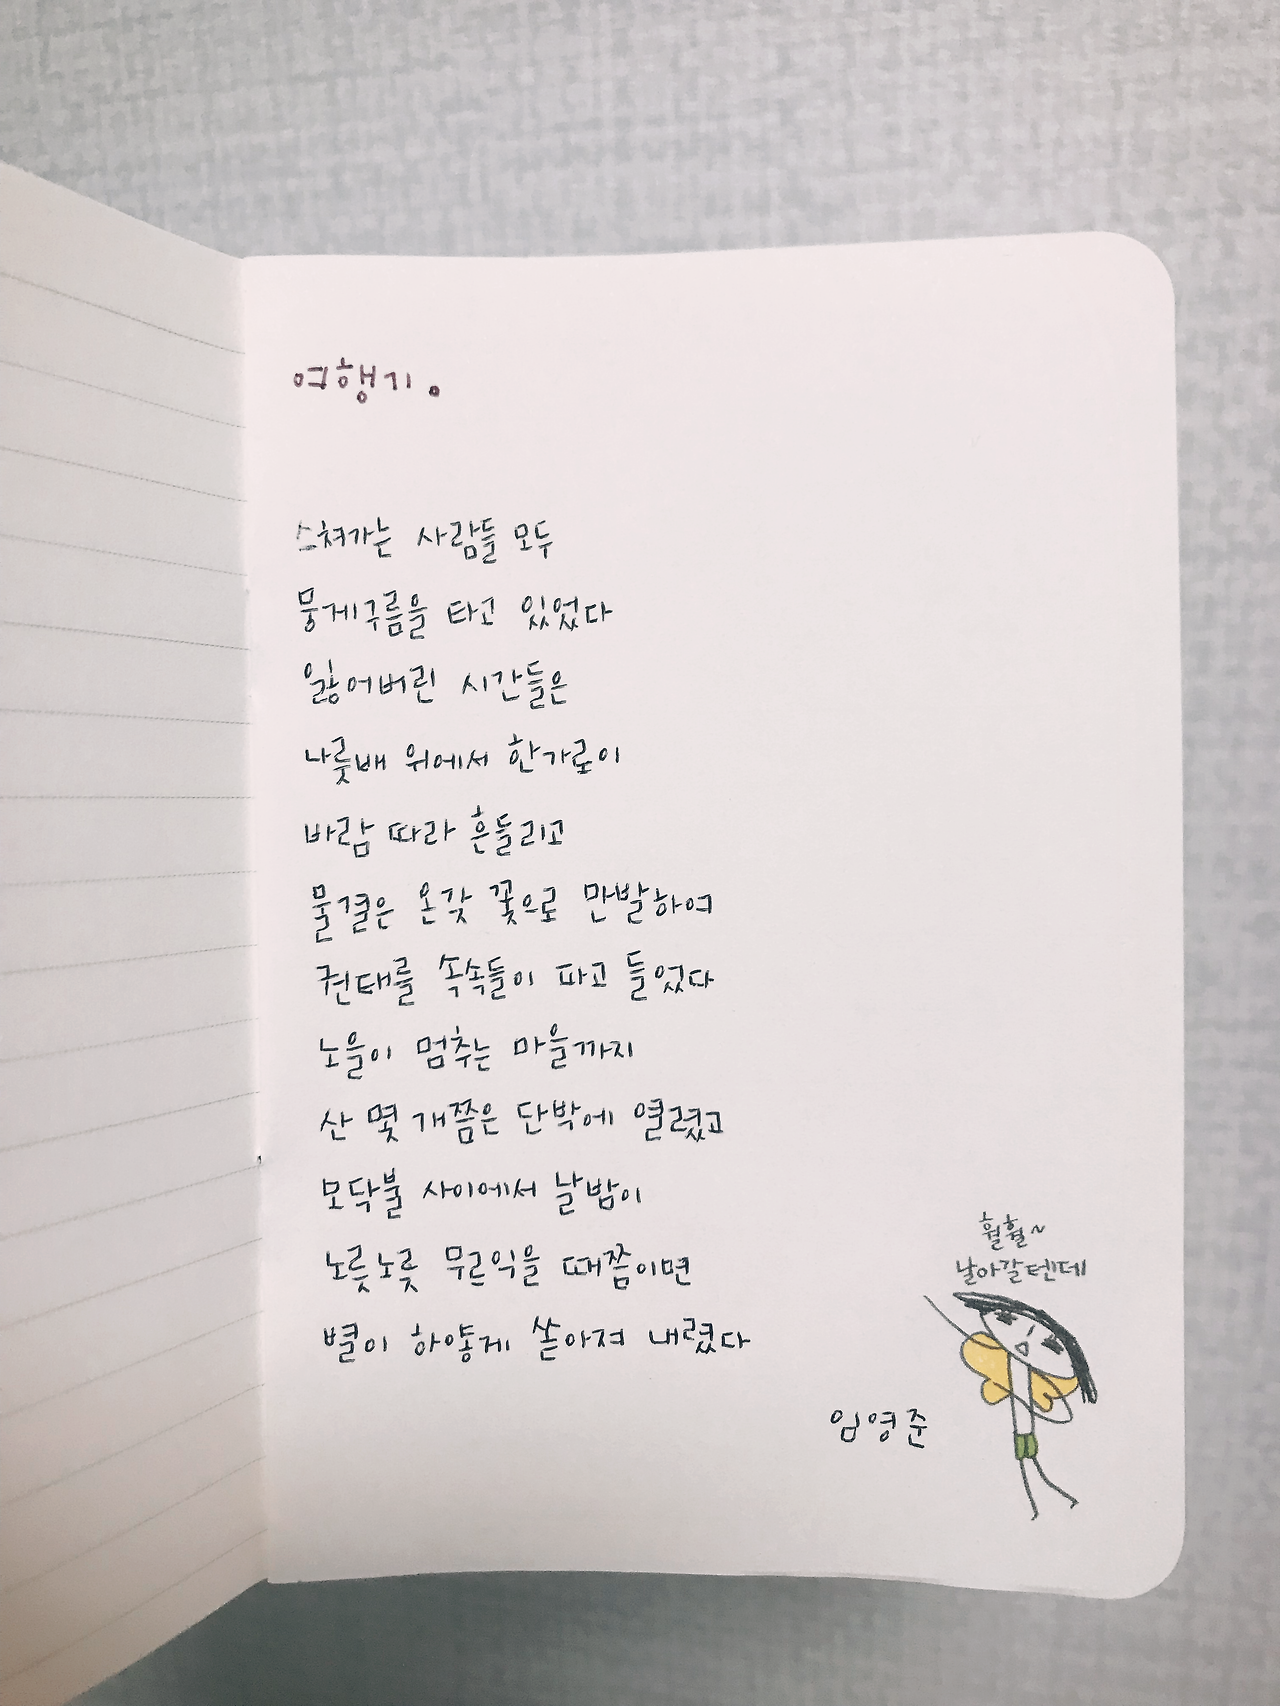 여행기.
스쳐가는 사람들 모두
뭉게구름을 타고 있었다
잃어버린 시간들은
나룻배 위에서 한가로이
바람 따라 흔들리고
물결은 온갖 꽃으로 만발하여
권태를 속속들이 파고 들었다
노을이 멈추는 마을까지
산 몇 개쯤은 단박에 열렸고
모닥불 사이에서 날밤이
노릇노릇 무르익을 때쯤이면
별이 하얗게 쏟아져 내렸다
임영준
훨훨~
날아갈텐데